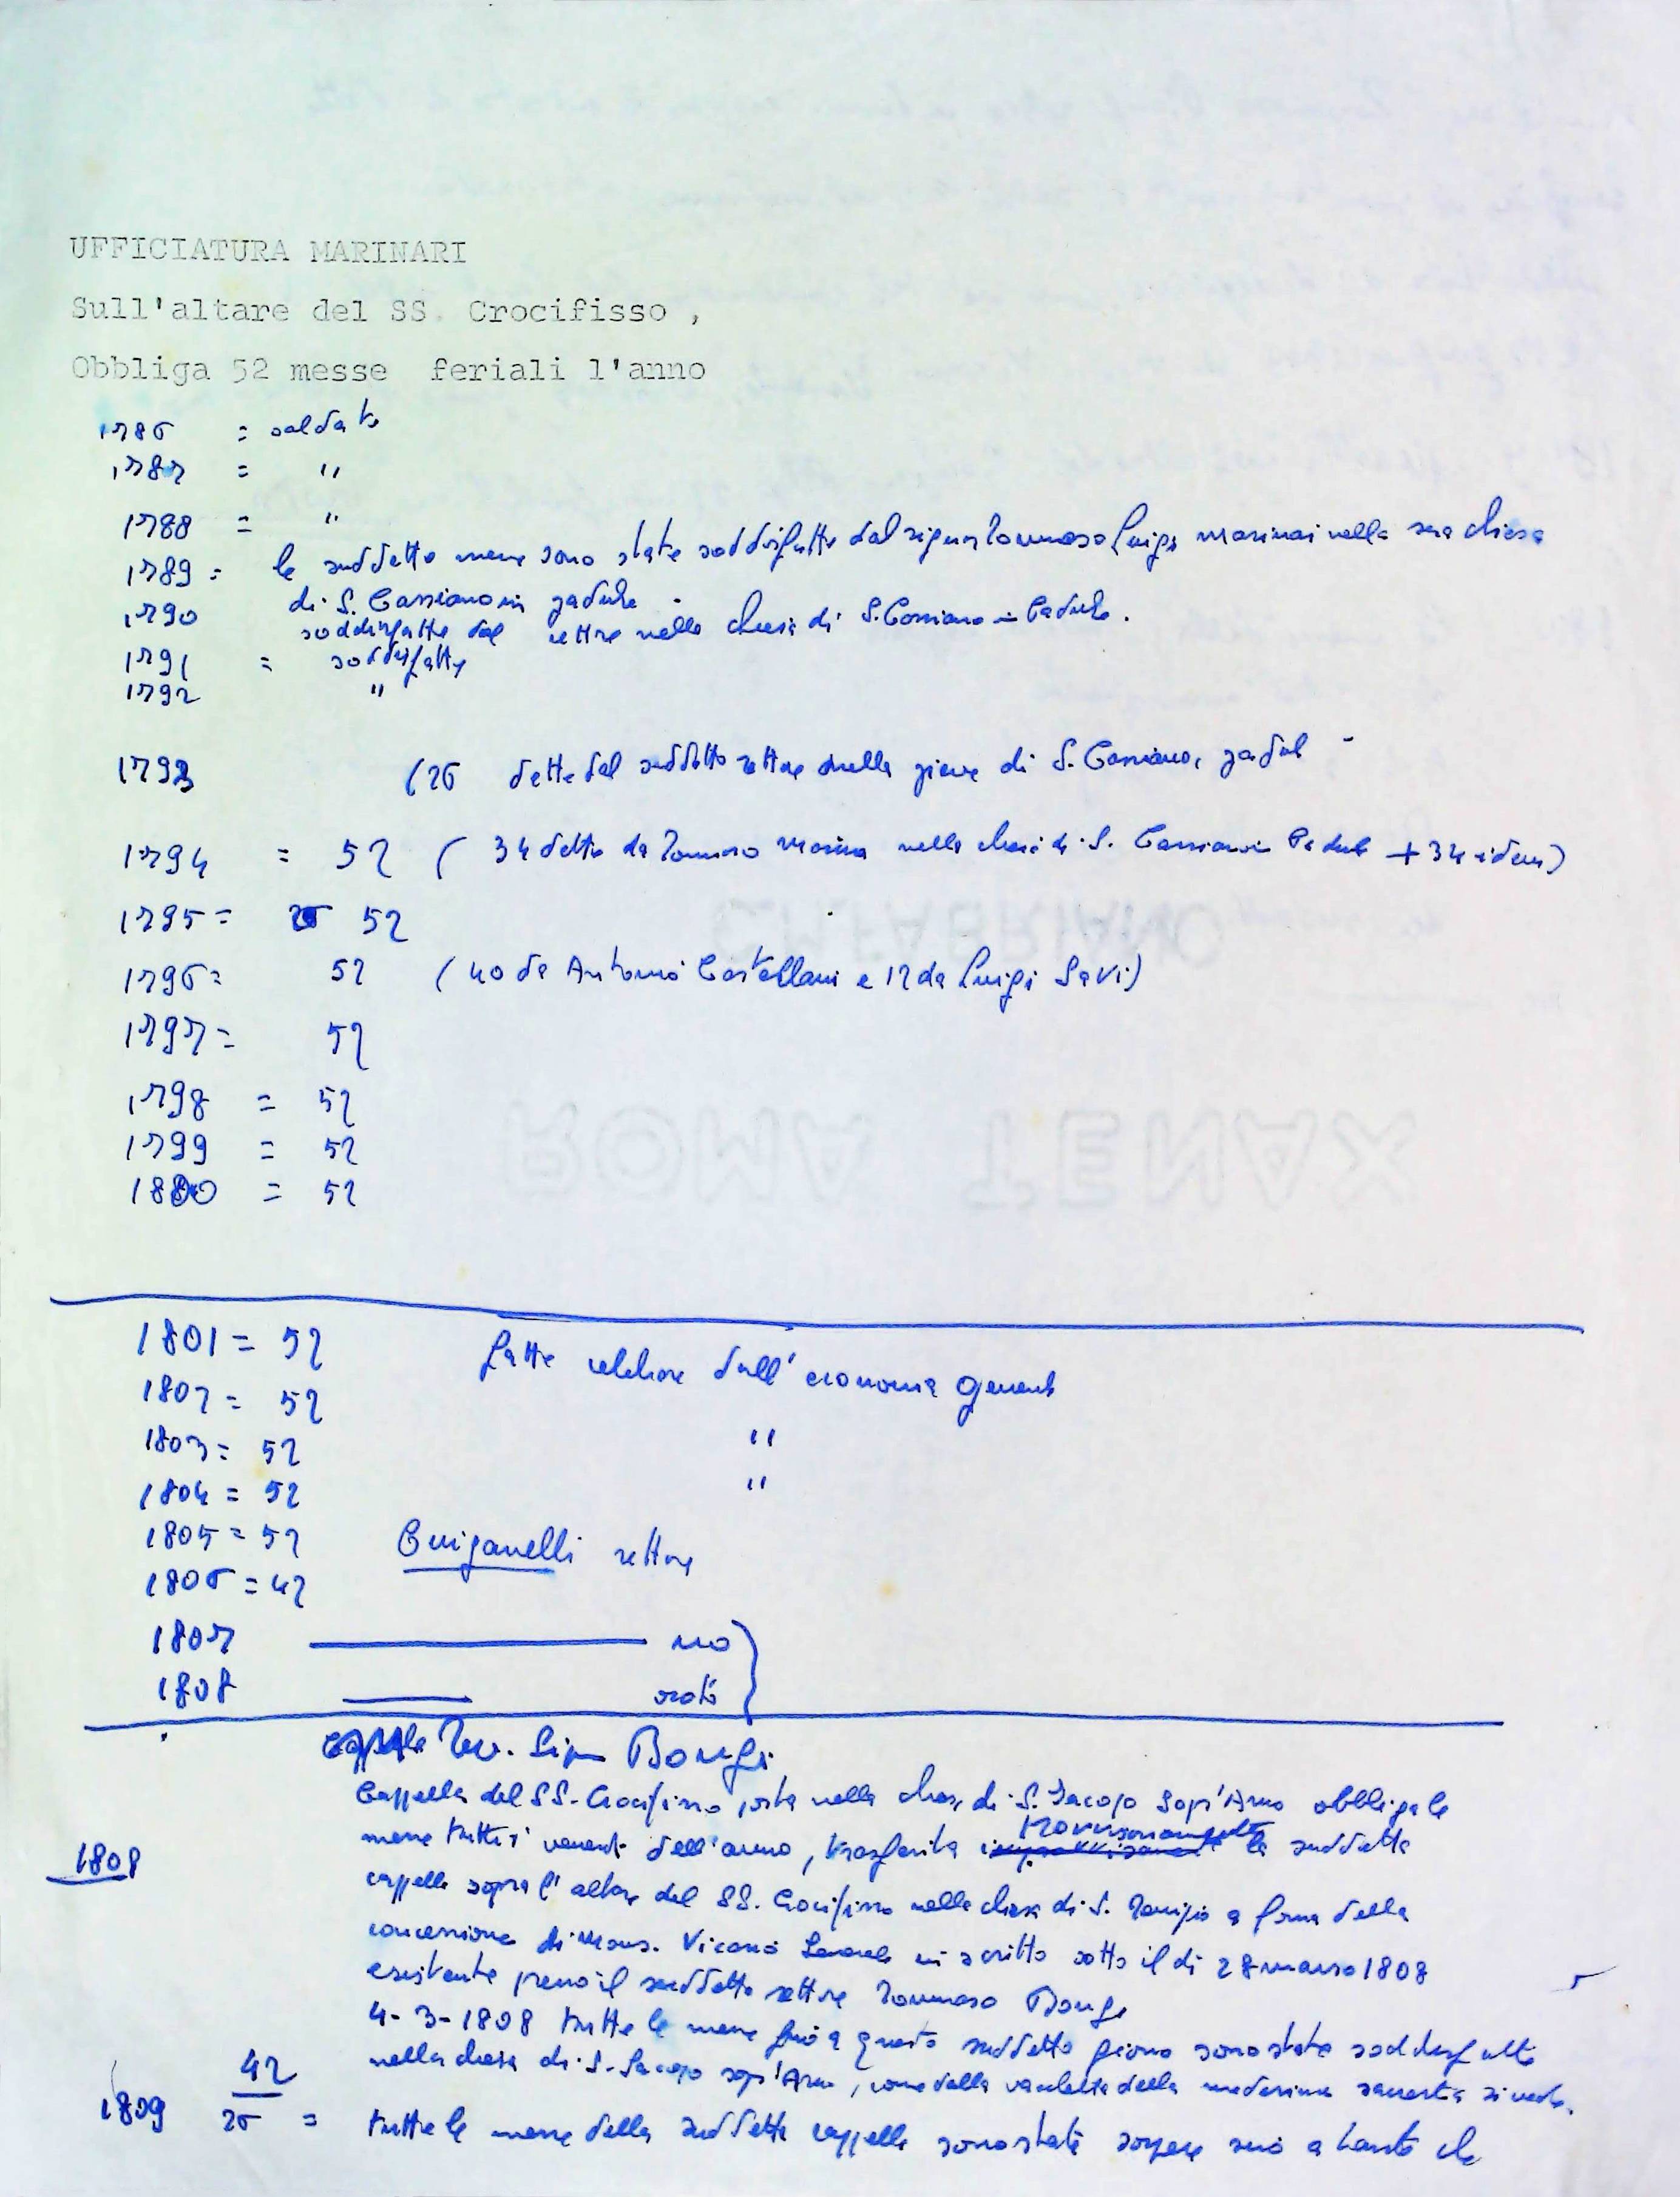 UFFICIATURA MARINARI
Sull'altare del SS. Crocifisso ,
Obbliga 52 messe feriali l'anno
1786 = saldato
1787 = "
1788 = "
1789 = le suddette messe sono state soddisfatte dal signor Tommaso Luigi Marinari nella sua chiesa
di S. Cassiano in Padule
1790 soddisfatte dal rettore nella chiesa di S. Cassiano in Padule.
1791 = soddisfatte
1792 "
1793 (26 dette dal suddetto rettore nella pieve di S. Cassiano,
1794 = 52 ( 34 dette da Tommaso Marina nella chiesa di S. Cassiano in Padule + 34 idem)
1795 = 52
1796 = 52 ( 40 da Antonio Castellani e 12 da Luigi Savi)
1797 = 52
1798 = 52
1799 = 52
1800 = 52
C.M.FABRIANO
ROMA TENAX
1801 = 52 fatte celebrare dall' economia
1802 = 52
1803 = 52 "
1804 = 52 "
1805 = 52 rettore
1806 = 42
1807 no
1808
Bongi
Cappella del SS. Crocifisso posta nella chiesa di S. Jacopo Sopr'Arno obbliga le
messe tutti i venerdì dell'anno, trasferita provvisoriamente la suddetta
1808 cappella sopra l'altare del SS. Crocifisso nella chiesa di S. Remigio a forma della
concessione di Mons. Vicario Generale in scritto sotto il dì 28 marzo 1808
esistente presso il suddetto rettore Tommaso Bongi
4-3-1808 tutte le messe fino a questo suddetto giorno sono state soddisfatte
nella chiesa di S. Jacopo sopr'Arno, come dalla della medesima sacrestia si vede.
1809 42
26 = tutte le messe della suddetta cappella sono state sospese sino a tanto che